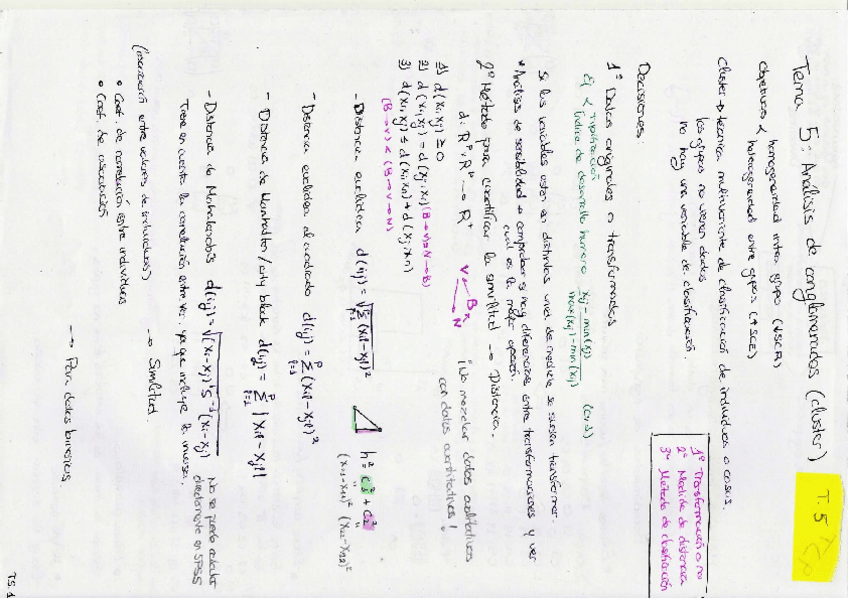 Tema 5: Análisis de conglomerados (cluster)
T.5
Objetivos < homogeneidad intra grupo (↓SCR)
heterogeneidad entre grupos (↑SCE)
Cluster → técnica multivariante de clasificación de individuos o casos.
los grupos no vienen dados
no hay una variable de clasificación.
1º Transformación o no
2º Medida de distancia
3º Método de clasificación
Decisiones:
1º Datos originales o transformados
Ej < tipificación
índice de desarrollo humano xij - min(xj) / max(xj) - min(xj) (0,1)
Si las variables están en distintos unid. de medida se suelen transformar.
* Análisis de sensibilidad → comprobar si hay diferencias entre transformaciones y ver
cuál es la mejor opción.
2º Método para cuantificar la similitud → Distancia.
d: Rᵖ x Rᵖ → R⁺
¡No mezclar datos cualitativos
con datos cuantitativos!
1) d(xi,xj) ≥ 0
2) d(xi,xj) = d(xj,xi) (B→V = V→B)
3) d(xi,xj) ≤ d(xi,xn) + d(xj,xn)
(B→V) < (B→V→N)
V B
N
- Distancia euclídea d(ij) = √Σ(xil - xjl)²
h² = c₁² + c₂²
(x11-x21)² (x12-x22)²
- Distancia euclídea al cuadrado d(ij) = Σ (xil - xjl)²
- Distancia de Manhattan/city block d(ij) = Σ |xil - xjl|
- Distancia de Mahalanobis d(ij) = √(xi-xj)'S⁻¹(xi-xj)
No se puede calcular
directamente en SPSS
Tiene en cuenta la correlación entre var. ya que incluye la inversa.
(asociación entre valores de individuos) → Similitud.
• Coef. de correlación entre individuos
• Coef. de asociación → Para datos binarios
T.5.1